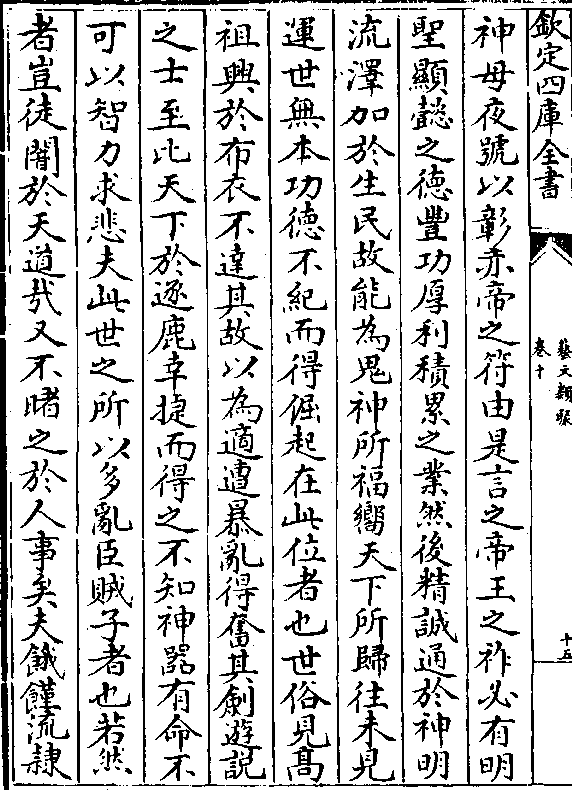 欽定四庫全書
藝文類聚
卷十
十五
神母夜號以彰赤帝之符由是言之帝王之祚必有明
聖顯懿之德豐功厚利積累之業然後精誠通於神明
流澤加於生民故能為鬼神所福嚮天下所歸往未見
運世無本功德不紀而得倔起在此位者也世俗見髙
祖興於布衣不達其故以為適遭暴亂得奮其劍遊說
之士至比天下於逐鹿幸捷而得之不知神器有命不
可以智力求悲夫此世之所以多亂臣賊子者也若然
者豈徒闇於天道㢤又不睹之於人事矣夫餓饉流隷